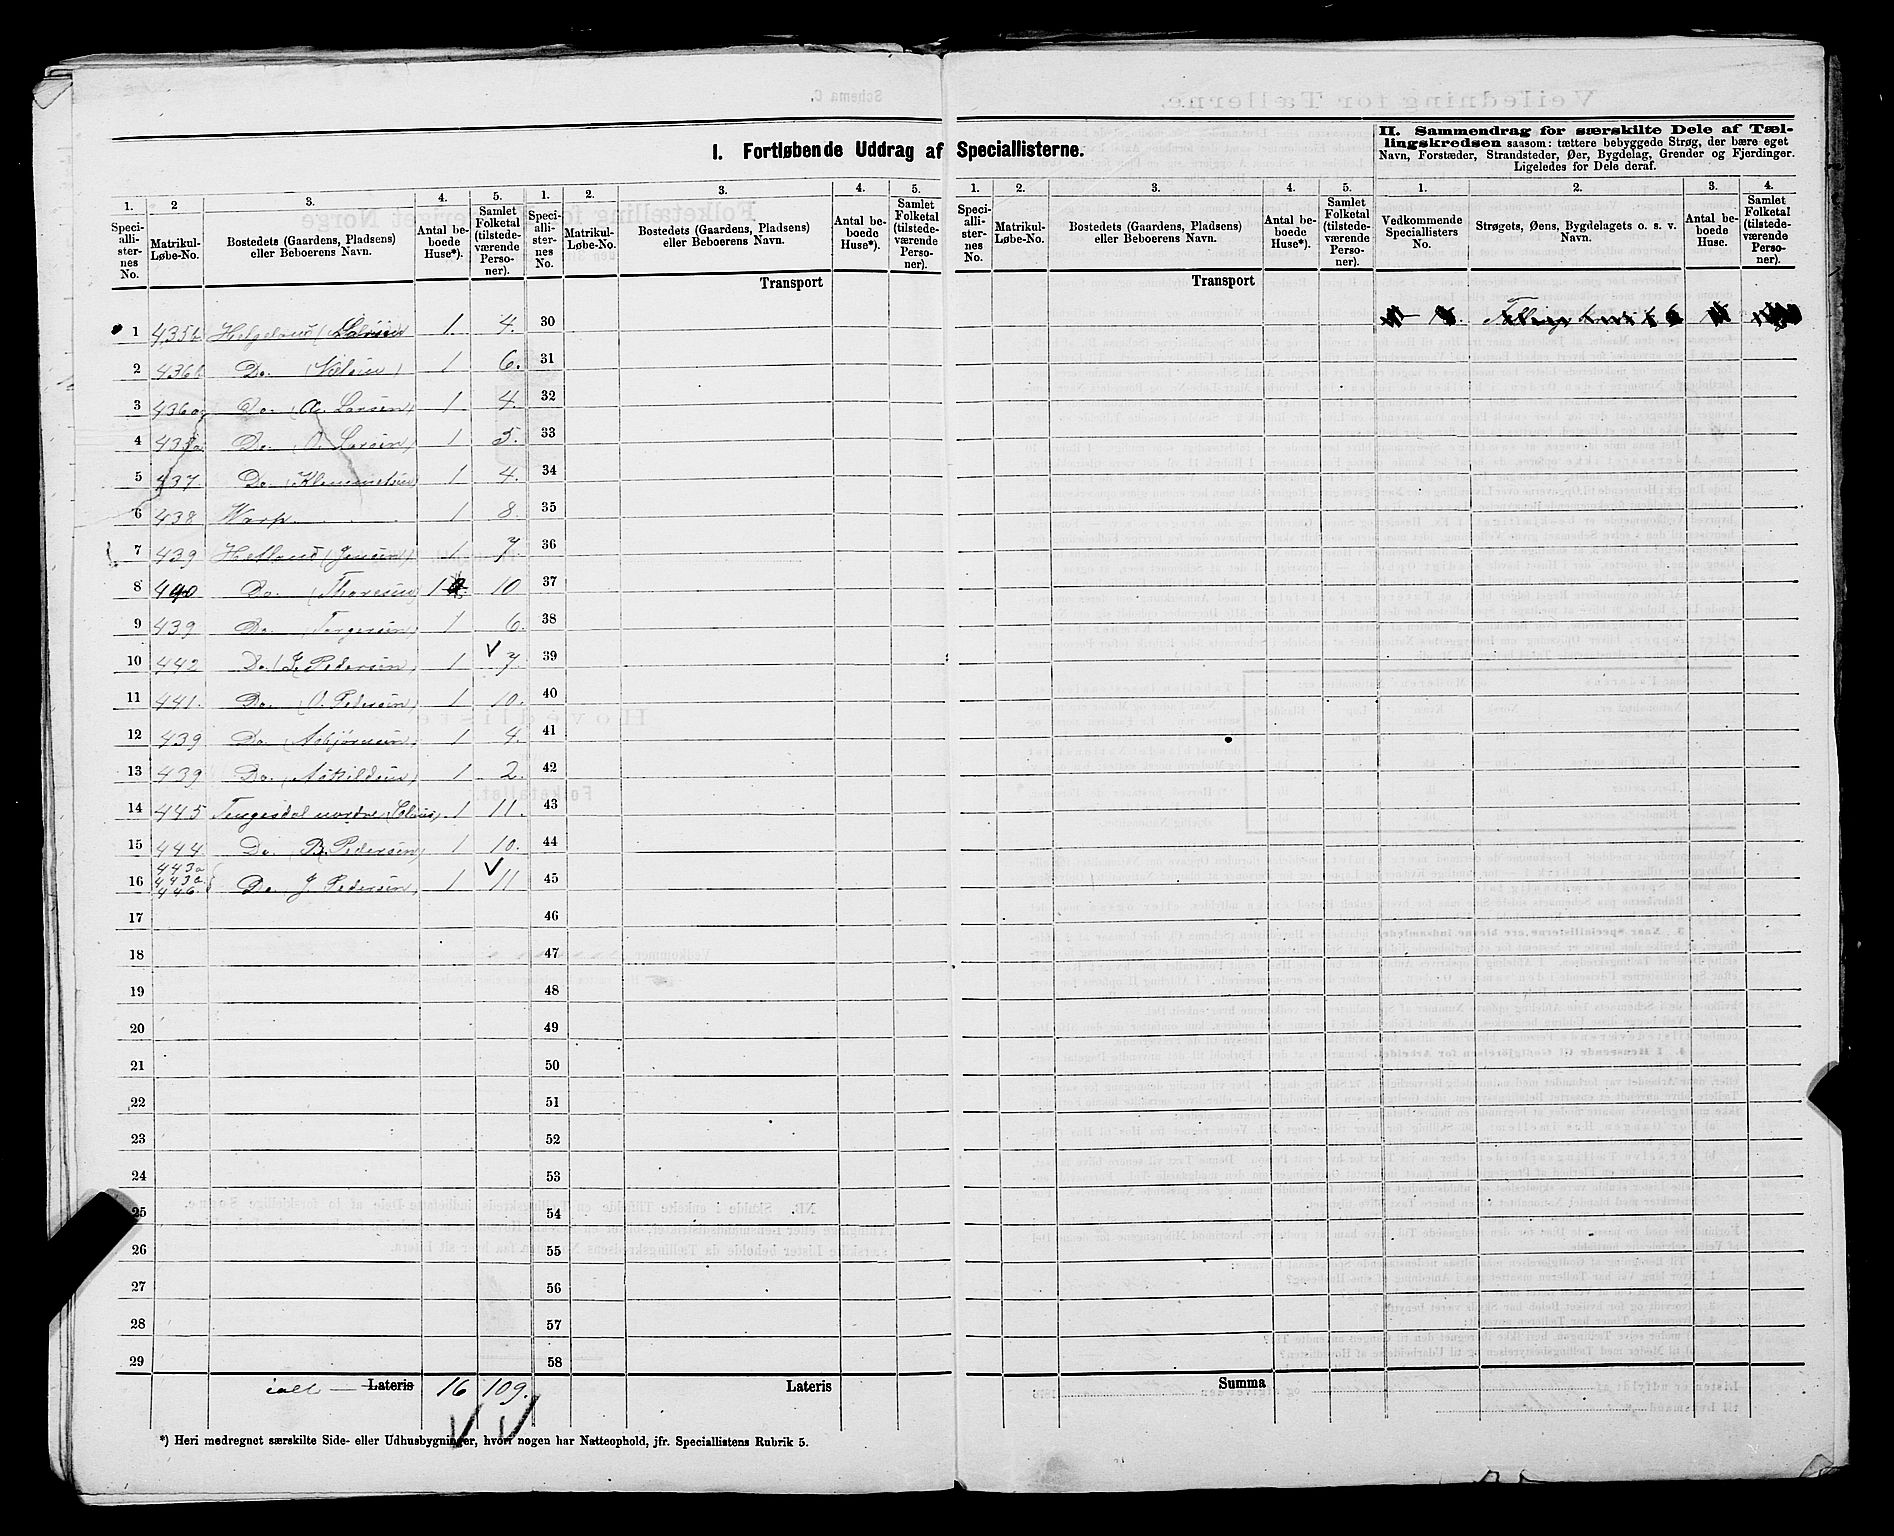 I. Fortløbende Uddrag af Speciallisterne.
II. Sammendrag for særskilte Dele af Tællingskredsen saasom: tættere bebyggede Strøg, der bære eget
Navn, Forstæder, Strandsteder, Øer, Bygdelag, Grender og Fjerdinger.
Ligeledes for Dele deraf.
1. 2 3. 4. 5. 1. 2. 3. 4. 5. 1. 2. 3. 4. 5. 1. 2. 3. 4.
Speciallisternes No. Matrikul-Løbe-No. Bostedets (Gaardens, Pladsens) eller Beboerens Navn. Antal beboede Huse*). Samlet Folketal (tilstedeværende Personer).
Speciallisternes No. Matrikul-Løbe-No. Bostedets (Gaardens, Pladsens) eller Beboerens Navn. Antal beboede Huse*). Samlet Folketal (tilstedeværende Personer).
Speciallisternes No. Matrikul-Løbe-No. Bostedets (Gaardens, Pladsens) eller Beboerens Navn. Antal beboede Huse*). Samlet Folketal (tilstedeværende Personer).
Vedkommende Speciallisters No. Strøgets, Øens, Bygdelagets o. s. v. Navn. Antal beboede Huse. Samlet Folketal (tilstedeværende Personer).
Transport Transport
1 435b 1 4. 30
2 436b Do. (Nelsen) 1 6. 31
3 436a Do. (A. Larsen) 1 4. 32
4 435a Do. (O. Larsen) 1 5. 33
5 437. Do. (Klemmetsen) 1 4. 34
6 438 Warp 1 8. 35
7 439 Hetland (Jensen) 1 7. 36
8 440 Do. (Thoresen) 1 10 37
9 439 Do. (Torgersen) 1 6. 38
10 442 Do. (J. Pedersen) 1 7. 39
11 441. Do. (O. Pedersen) 1 10. 40
12 439 Do. (Asbjørnsen) 1 4. 41
13 439 Do. (Askildsen) 1 2. 42
14 445 Tengesdal nordre 1 11. 43
15 444 Do. (B. Pedersen) 1 10. 44
16 443a 443a 446. Do. J. Pedersen 1 11 45
17 46
18 47
19 48
20 49
21 50
22 51
23 52
24 53
25 54
26 55
27 56
28 57
29 58
ialt — Lateris 16 109. Lateris Summa
*) Heri medregnet særskilte Side- eller Udhusbygninger, hvori nogen har Natteophold, jfr. Speciallistens Rubrik 5.